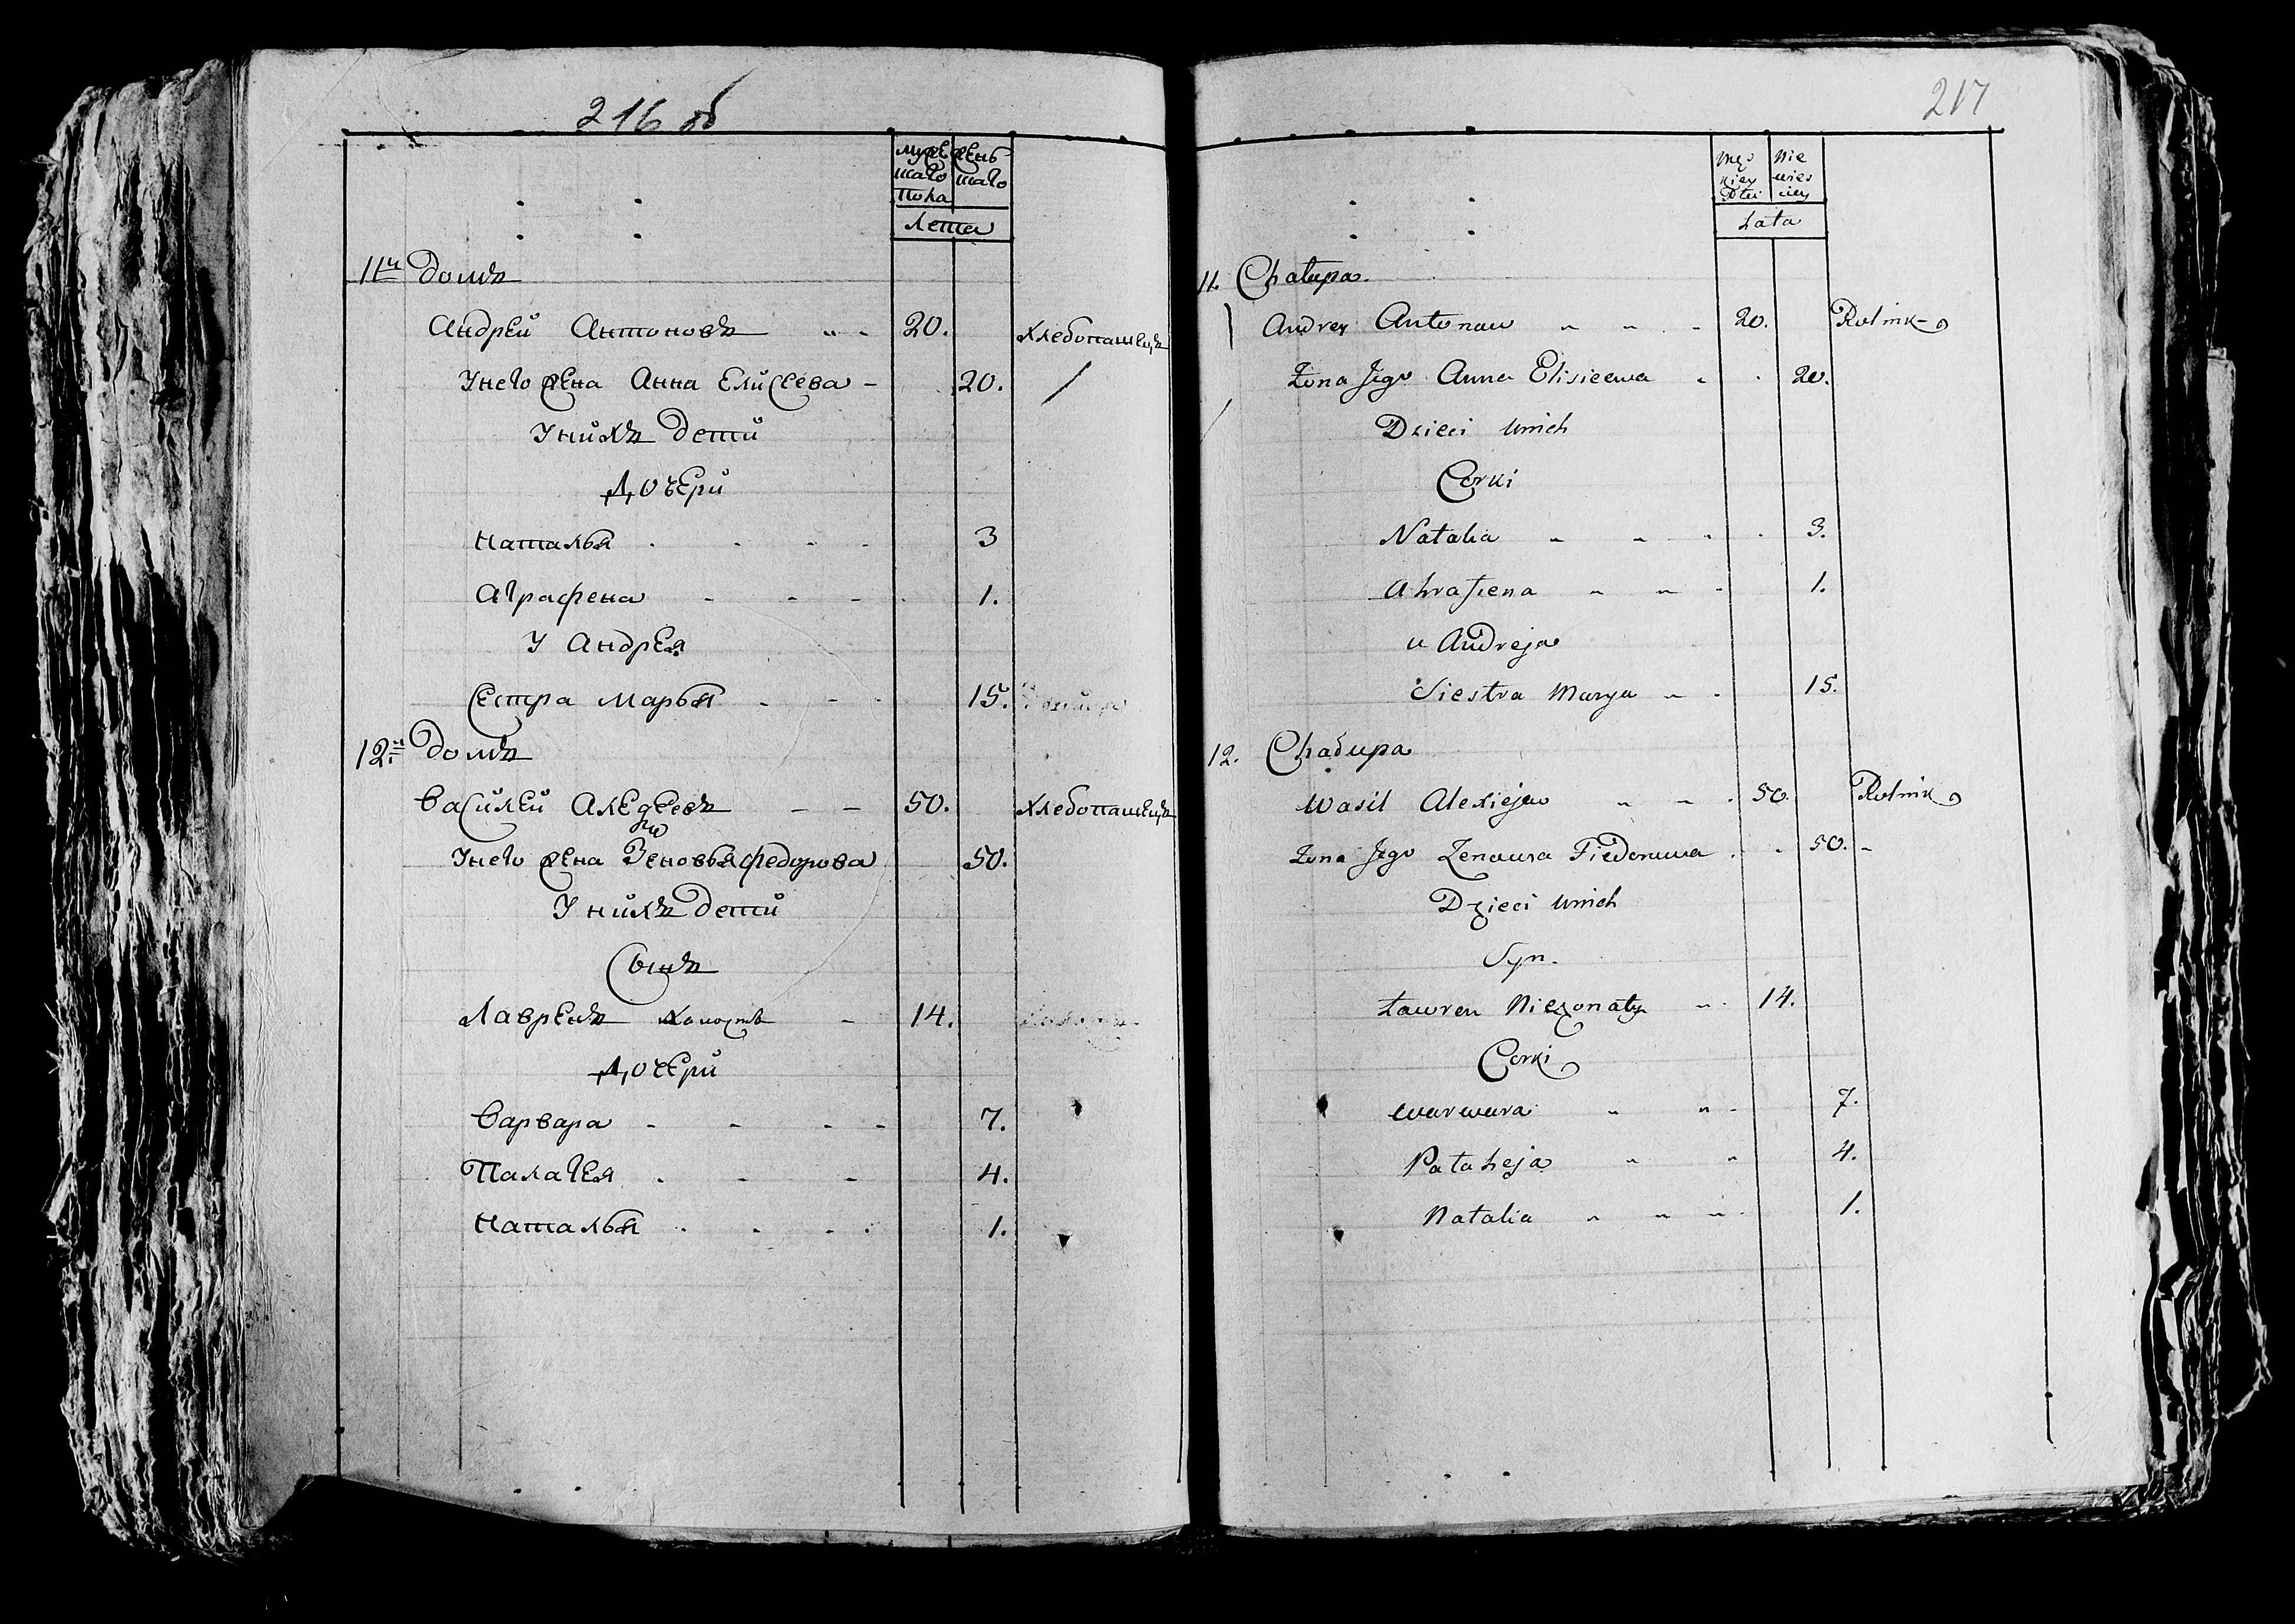 216 об
мужескаго пола женскаго
Лета
11й домъ
Андрей Антоновъ 20. хлебопашецъ
У него жена Анна Елисеева 20.
У нйхъ дети
Дочери
Наталья 3
Аграфена 1.
У Андрея
Сестра Марья 15.
12.й домъ
Василей Алеѯеевъ 50. хлебопашецъ
У него жена Зеновья Федорова 50.
У нихъ дети
Сынъ
Лаврень холостъ 14.
Дочери
Варвара 7.
Палагея 4.
Наталья 1.
217
Lata
11. Chałupa.
Andrey Antonow 20. Rolnik
Żona Jego Anna Elisieewa 20.
Dzieci unich
Corki
Natalia 3.
Ahrafiena 1.
u Andreja
Siestra Marya 15.
12. Chałupa
Wasil Alexiejew 50. Rolnik
Żona Jego Zenowia Fiedorowa 50.
Dzieci unich
Syn.
Ławren Nieżonaty 14.
Corki
Warwara 7.
Pałaheja 4.
Natalia 1.